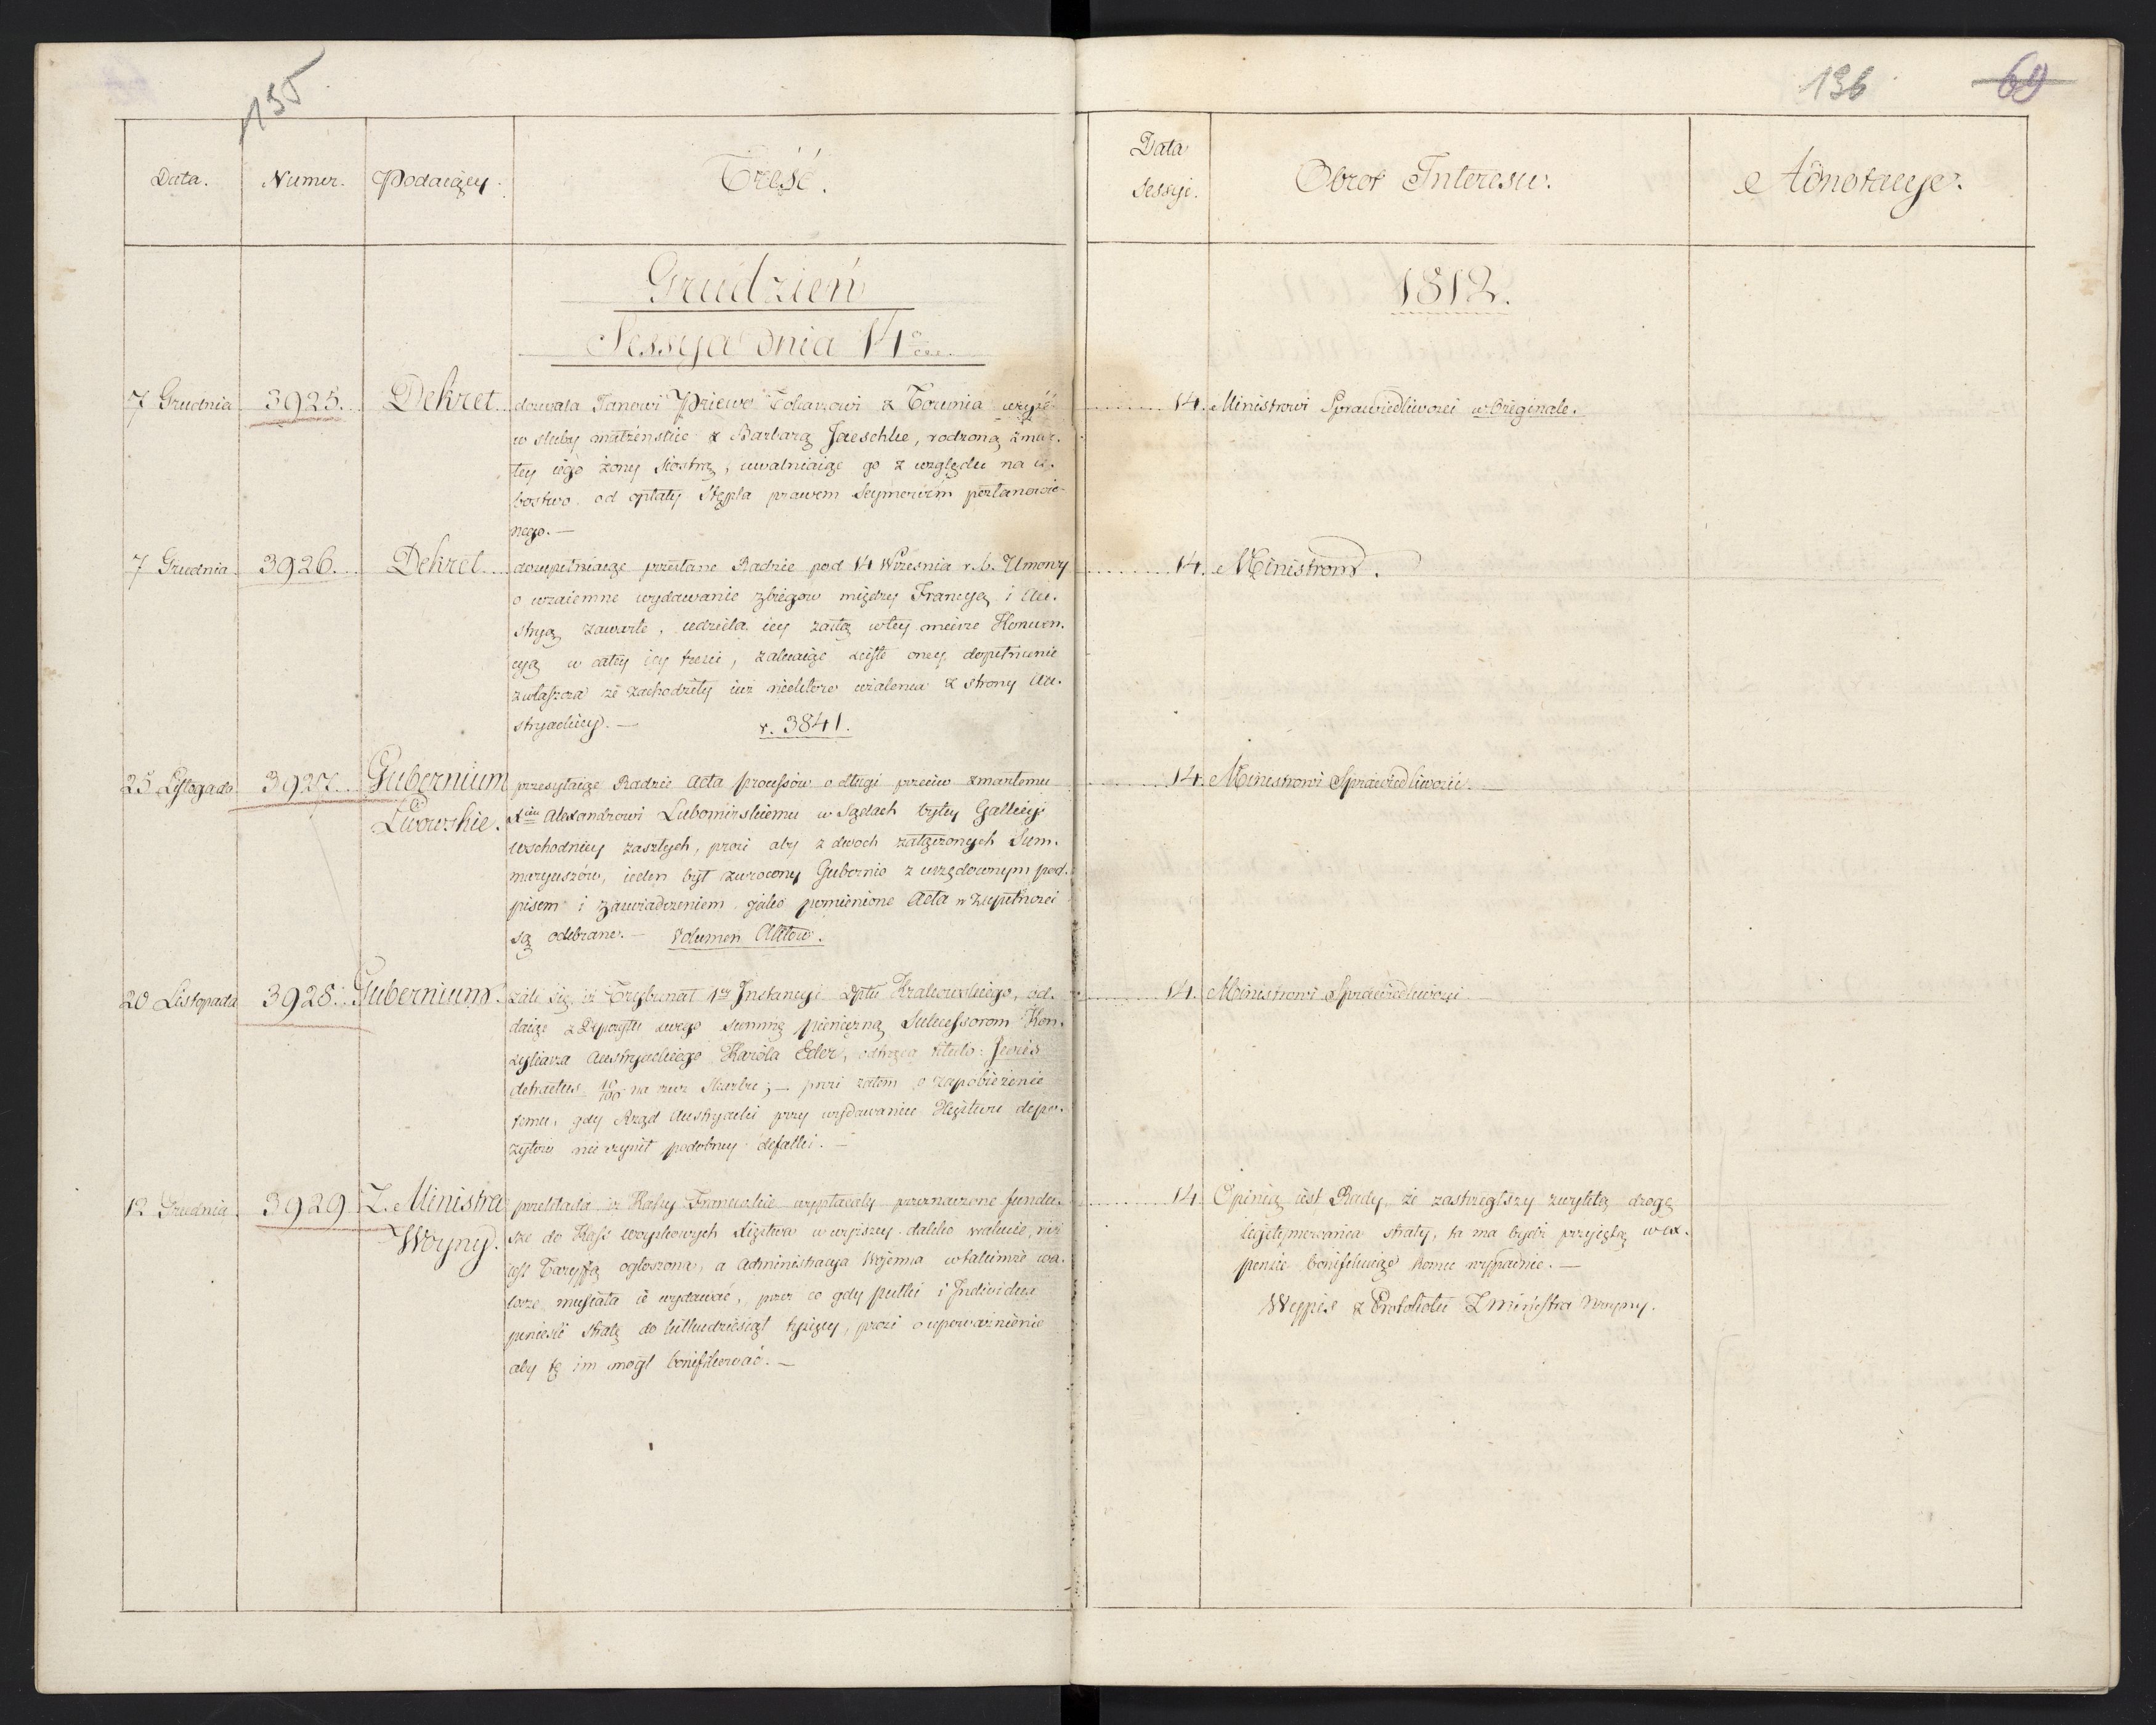 135
136 69
Data. Numer. Podaiący. Treść.
Data Sessyi. Obrot Interesu. Adnotacye.
Grudzień 1812.
Sessya dnia 14
7 Grudnia 3925. Dekret dozwala Janowi Tokarzowi z Torunia wejść
w śluby małżeńskie z Barbarą Jaeschke, rodzoną zmar-
łey iego żony Siostrą, uwalniaiąc go z względu na u-
bostwo od opłaty Stępla prawem Seymowém postanowio-
nego. —
14. Ministrowi Sprawiedliwości w Oryginale.
7 Grudnia 3926. Dekret dozupełniaiąc przesłane Radzie pod 14 Września r. b. Umowy
o wzaiemne wydawanie zbiegow między Francyą i Au-
stryą zawarte, udziela iey zaszłą w tey mierze Konwen-
cyą w całey iey treści, zalecaiąc ścisłe oney dopełnienie
zwłaszcza że zachodziły iuż niektóre użalenia z strony Au-
stryackiey. — r. 3841.
14. Ministrom.
25 Listopada 3927. Gubernium przesyłaiąc Radzie Acta processów o długi przeciw zmarłemu
Lwowskie. Xciu Alexandrowi Lubomirskiemu w Sądach byłey Gallicyi
wschodniey zaszłych, prosi aby z dwoch załączonych Sum-
maryuszów, ieden był zwrocony Gubernio z urzędownym pod-
pisem i zaświadczeniem jako pomienione Acta w zupełności
są odebrane. — Volumen Aktow.
14. Ministrowi Sprawiedliwości. —
20 Listopada 3928. Gubernium. żali się iż Trybunał 1ey Instancyi Dptu Krakowskiego, od-
daiąc z Depozytu swego summę pieniężną Sukcessorom Kon-
syliarza Austryackiego Karola Eder, odtrąca titulo: Jeris
detractus 10/100 na rzecz Skarbu; — prosi zatem o zapobieżenie
temu, gdy Rząd Austryacki przy wydawaniu Xięstwu depo-
zytow nie czynił podobney defalki. —
14. Ministrowi Sprawiedliwości —
12 Grudnia 3929 Z. Ministra przekłada iż Kassy Francuzkie wypłacały przeznaczone fundu-
Woyny. sze do Kass woyskowych Xięstwa w wyższey daleko walucie, niż
iest Taryffą ogłoszona, a Administracya Wojenna w takimże wa-
lorze musiała ie wydawać, przez co gdy pułki i Individua
poniosły stratę do kilkudziesiąt tysięcy, prosi o upoważnienie
aby tę im mógł bonifikować. —
14. Opinią iest Rady, że zastrzegłszy zwykłą drogę
legitymowania straty, ta ma bydź przyiętą w ex-
pensie bonifikuiąc komu wypadnie. —
Wypis z Protokołu Z Ministra Woyny.